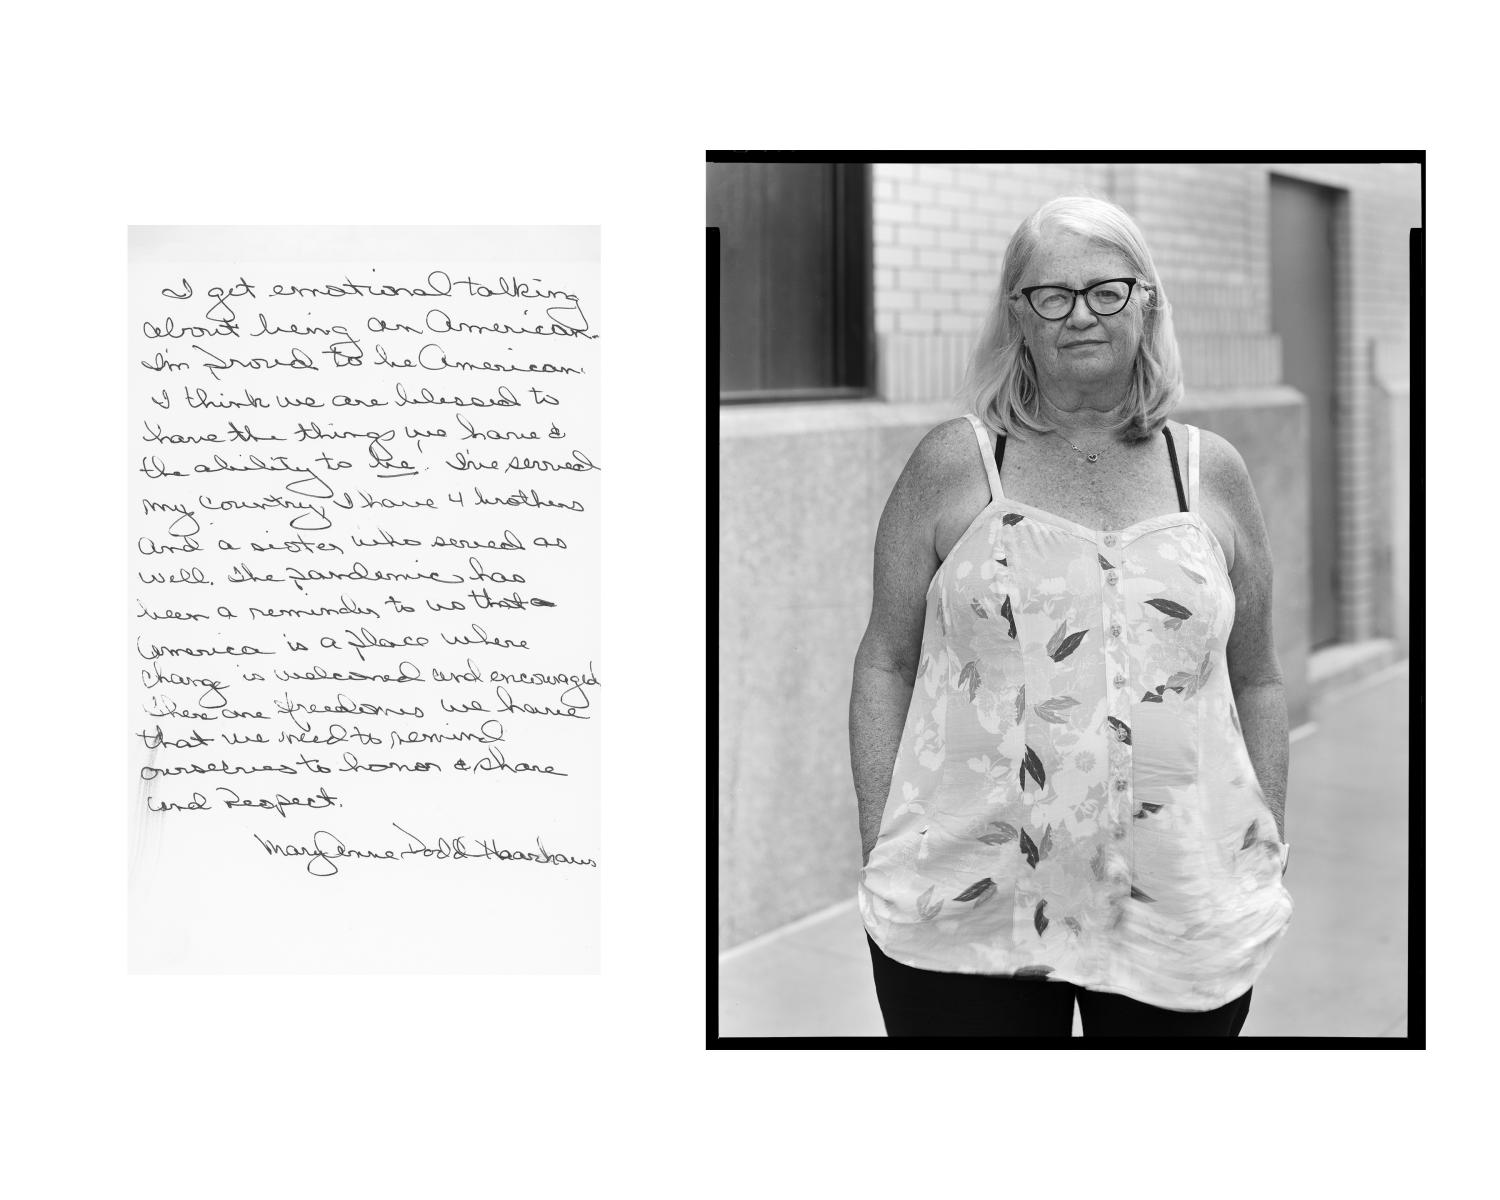 I get emotional talking
about being an American.
I'm proud to be American.
I think we are blessed to
have the things we have &
the ability to be. I've served
my country, I have 4 brothers
and a sister who served as
well. The pandemic has
been a reminder to us that
America is a place where
change is welcomed and encouraged
There are freedoms we have
that we need to remind
ourselves to honor & share
and Respect.
MaryAnne Dodd Haarhaus